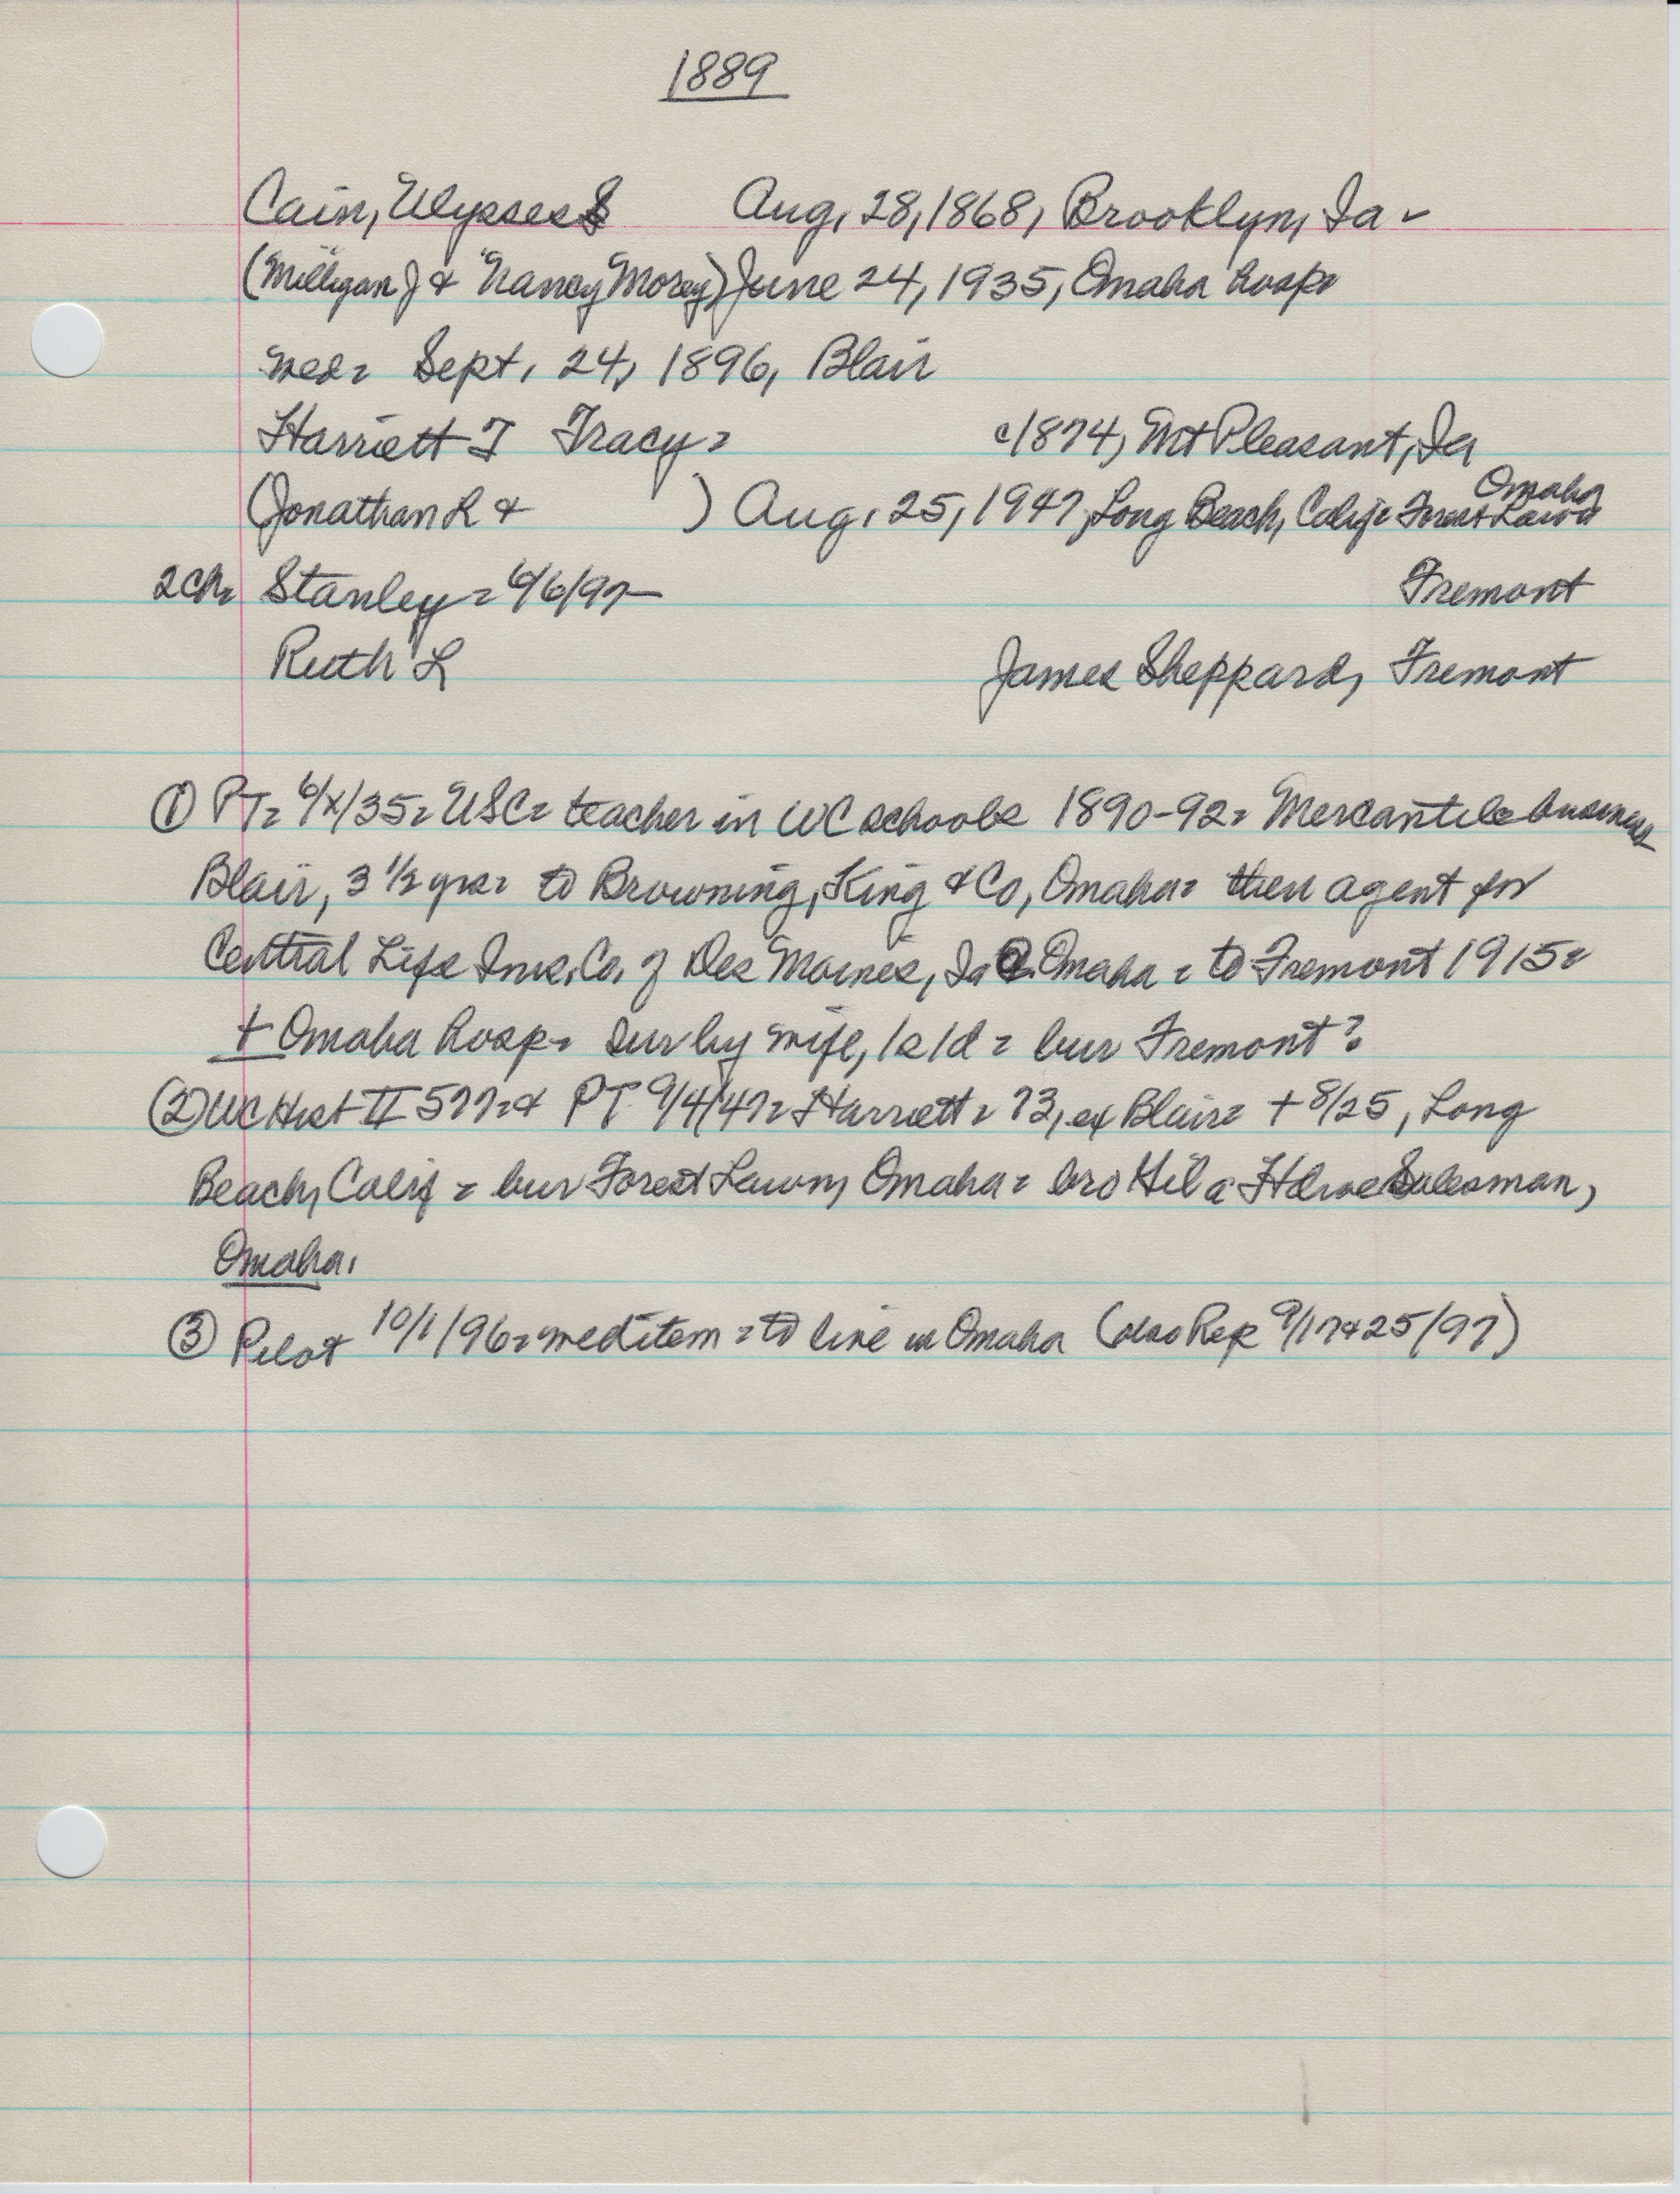 1889
Cain, Ulysses S Aug. 28, 1868, Brooklyn, Ia -
(Milligan J & Nancy Morey) June 24, 1935, Omaha hosp
med= Sept. 24, 1896, Blair
Harriett T Tracy= c/1874, Mt Pleasant, Ia
(Jonathan R & ) Aug. 25, 1947, Long Beach, Calif= Forest Lawn Omaha
2ch= Stanley= 6/6/97- Fremont
Ruth L James Sheppard, Fremont
① PT= 6/x/35= USC= teacher in WC schools 1890-92= Mercantile business
Blair, 3 1/2 yrs= to Browning, King & Co, Omaha= then agent for
Central Life Ins. Co. of Des Moines, Ia @ Omaha = to Fremont 1915=
+ Omaha hosp= sur by wife, 1s 1d = bur Fremont?
② WC Hist II 577= & PT 9/4/47= Harriett= 73, ex Blair= + 8/25, Long
Beach, Calif = bur Forest Lawn, Omaha= bro Hil a Hdwe Salesman,
Omaha.
③ Pilot 10/1/96= wed item = to live in Omaha (also Rep 9/17 & 25/97)